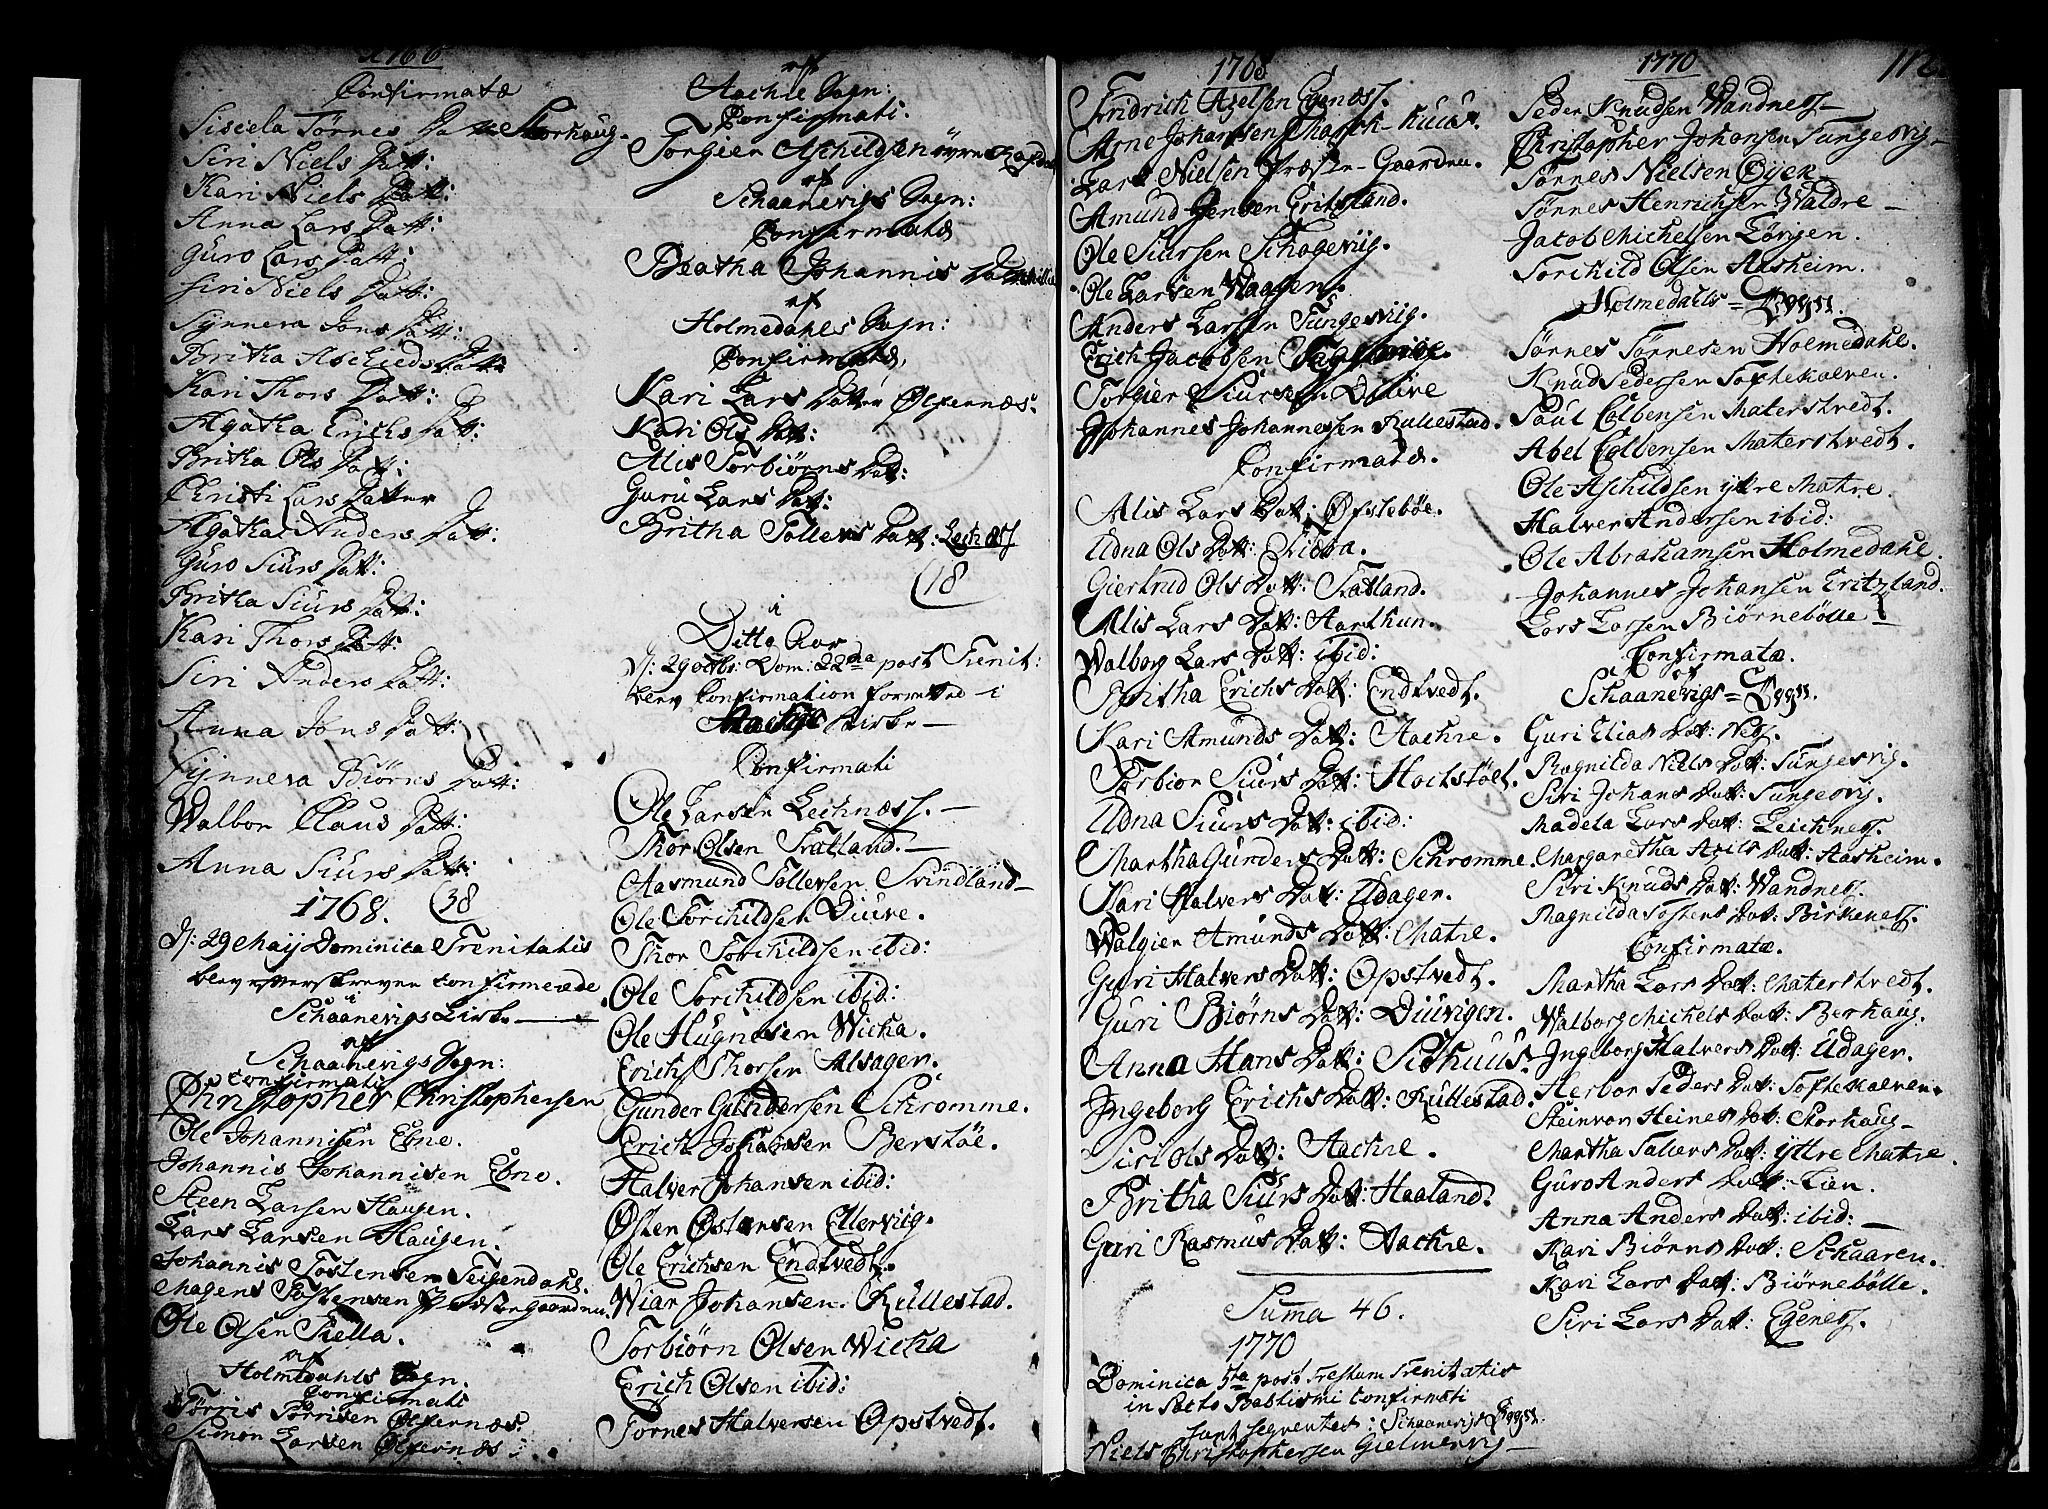 1766
Confirmatæ
Siscela Törnes Datt Storhaug.
Siri Niels Datt:
Kari Niels Datt:
Anna Lars Datt:
Guro Lars Datt:
Siri Niels Datt:
Synneva Jons Datt:
Britha Aschieds Datt:
Kari Thors Datt:
Agatha Erichs Datt:
Britha Ols Datt:
Christi Lars Datter
Agatha Anders Datt:
Guro Siurs Datt:
Britha Siurs Datt:
Kari Thors Datt:
Siri Anders Datt:
Anna Jons Datt:
Synneva Biörns Datt:
Walbor Claus Datt:
Anna Siurs Datt:
1768. (38
D: 29 Maij Dominica Trinitatis
blev efterskrevne confirmerede
i
Schaanevigs Kirke
af
Schaanevigs Sogn:
Confirmati
Christopher Christophersen
Ole Johannisen Ebne.
Johannis Johannisen Ebne.
Steen Larsen Haugen.
Lars Larsen Haugen.
Johannis Tostensen Teigendahl.
Mogens Tostensen Præstegaarden.
Ole Olsen Tiella.
af
Holmedahls Sogn.
Confirmati
Törris Törrisen Ølfernæs.
Simon Larsen Ølfernæs.
af
Aachre Sogn:
Confirmati.
Torgier Aschildsen øvre
af
Schaanevigs Sogn:
Confirmatæ
Beatha Johannis Datt
af
Holmedahls Sogn:
Confirmatæ,
Kari Lars Datter Ølfernæs.
Kari Ols Datt:
Alis Torbiörns Dat:
Guru Lars Dat:
Britha Tollevs Datt: Leichness
(18
i
Ditto Aar
D: 29 Octbr: Dom: 22da post Trinit:
blev Confirmation forrettet i
Aachre Kirke
Confirmati
Ole Larsen Leichnæss.
Thor Olsen Fratland.
Aasmund Tollefsen Svindland
Ole Torchildsen Diuve.
Thor Torchildsen ibid:
Ole Torchildsen ibid:
Ole Hugnesen Wicha.
Erich Thorsen Alsager.
Gunder Gundersen Schromme.
Erich Johansen Berstöe.
Halver Johansen ibid:
Østen Østensen Ellerviig.
Ole Erichsen Endtvedt.
Wiar Johansen. Rullestad.
Torbiörn Olsen Wicha
Erich Olsen ibid:
Tornes Halversen Opstvedt.
1768
Fridrich Axelsen Egeness.
Arne Johannsen
Lars Nielsen Præste-Gaarden.
Amund Jensen Eritzland.
Ole Siursen Schogeviig.
Ole Larsen Waagen.
Anders Larsen Tungesviig.
Erich Jacobsen
Torgier Siursen Diuve
Johannes Johannessen Rullestad.
Confirmatæ.
Alis Lars Dat: Øfstebøe.
Udna Ols Datt:
Giertrud Ols Datt: Fatland.
Alis Lars Datt: Aarthun.
Walborg Lars Datt: ibid:
Britha Erichs Datt: Endtvedt.
Kari Amunds Datt: Aachre.
Torbior Siurs Datt: Hochstöel.
Udna Siurs Datt: ibid:
Martha Gunders Datt: Schromme.
Kari Halvers Datt: Udager.
Walgier Amunds Datt: Matre.
Guri Halvers Datt: Opstvedt.
Guri Biörns Datt: Diuvigen.
Anna Hans Datt: Siohuus.
Ingeborg Erichs Datt: Rullestad.
Siri Ols Datt: Aachre.
Britha Siurs Datt: Haaland.
Guri Rasmus Datt: Aachre.
Suma 46.
1770
Dominica 5ta post Festum Trinitatis
in Pacto Baptismi confirmati
sunt seqventes: Schaanevigs
Niels Christophersen Gielmervig
1770
Peder Knudsen Wandness
Christopher Johansen Tungesvig
Törnes Nielsen Øyer
Törnes Henrichsen Waldre
Jacob Michelsen Töngen.
Torchild Olsen Aasheim.
Holmedahls=
Törnes Törnesen Holmedahl.
Knud Pedersen Toftekalven.
Paul Colbensen Materstvedt.
Abel Colbensen Materstvedt.
Ole Aschildsen yttre Matre.
Halver Andersen ibid:
Ole Abrahamsen Holmedahl.
Johannes Johansen Eritzland.
Lars Larsen Biörnebölle
Confirmatæ.
af
Schaanevigs=
Guri Elias Dat: Ness.
Ragnilda Niels Datt: Tungesvig.
Siri Johans Dat: Tungesvig.
Madela Lars Dat: Leichness.
Margaretha Axels Dat: Aasheim.
Siri Knuds Dat: Wandness.
Ragnilda Tostens Dat: Birkeness.
Confirmatæ.
Martha Lars Datt: Materstvedt.
Walborg Michels Dat: Berhaug.
Ingeborg Halvers Datt: Udager.
Herbor Peders Dat: Toftekalven.
Steinvor Heines Dat: Storhaug
Martha Salvers Dat: yttre Matre.
Guro Anders Datt: Lien.
Anna Anders Dat: ibid:
Kari Biörns Datt: Schaaren.
Kari Lars Datt: Biörnebölle.
Siri Lars Datt: Egeness.